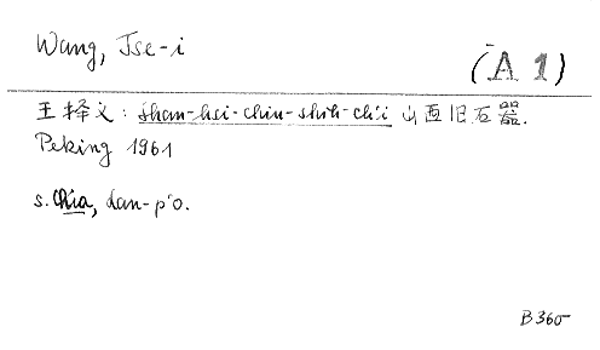 Wang, Tse-i
(A 1)
王择义: Shan-hsi-chiu-shih-ch'i 山西旧石器.
Peking 1961
s. Chia, Lan-p'o.
B 360